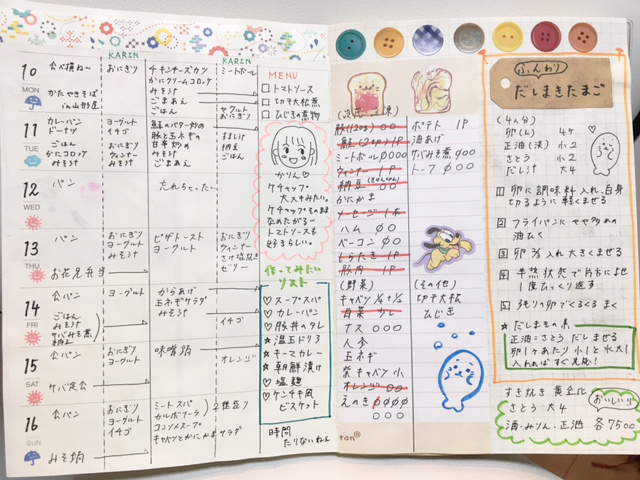 KARIN
KARIN
10
MON
食べ損ねー
かたやきそば
in山形屋
おにぎり
チキンチーズカツ
かにクリームコロッケ
みそ汁
ごまあえ
ごはん
ミートボール
ヤクルト
おにぎり
11
TUE
カレーパン
ドーナツ
ごはん
かにコロッケ
みそ汁
ヨーグルト
イチゴ
おにぎり
ウィンナー
みそ汁
鮭のバター炒め
豚と玉ネギの
甘辛炒め
みそ汁
ごまあえ
納豆
ごはん
12
WED
パン
忘れちゃった…
13
THU
パン
お花見弁当
おにぎり
ヨーグルト
みそ汁
ピザトースト
ヨーグルト
おにぎり
ウィンナー
さけ塩焼き
ゼリー
14
FRI
食パン
ごはん
みそ汁
サバみそ煮
納豆
ヨーグルト
からあげ
玉ネギサラダ
みそ汁
イチゴ
15
SAT
食パン
サバ定食
おにぎり
ヨーグルト
味噌鍋
オレンジ
16
SUN
食パン
みそ鍋
おにぎり
ヨーグルト
イチゴ
ミートスパ
カルボナーラ
コンソメスープ
キャベツとかにかま
サラダ
MENU
トマトソース
切干大根煮
ひじきの煮物
かりん
ケチャップ
大スキみたい。
ケチャップそのまま
なめたがるー
トマトソースも
好きらしい。
作ってみたい
リスト
♡スープスパ
♡カレーパン
♡豚丼のタレ
★温玉ドリア
★キーマカレー
★朝鮮漬け
♡塩麹
♡ケンチキ風
ビスケット
時間
たりないねん
豚(120g) OO
鮭(120g) 1P
ミートボール OOOO
ウィンナー 1P
納豆
かにかま
ソーセージ 1本
ハム OO
ベーコン OO
しらたき 1P
豚肉 1P
(野菜)
キャベツ 1/4+1/2
白菜 少し
ナス OOO
人参
玉ネギ
紫キャベツ 小
オレンジ OO
えのき OOOO
OOO
ポテト 1P
油あげ
サバみそ煮 900
トーフ OO
(その他)
切干大根
ひじき
ふんわり
だしまきたまご
(4人分)
卵(L) 4ケ
正油(淡) 小2
さとう 小2
だし汁 大4
1 卵に調味料入れ、白身
切るように軽くまぜる
2 フライパンにやや多めの
油ひく
3 卵1/3入れ大きくまぜる
4 半熟状態で片方によせ
1度ひっくり返す
5 残りの卵でくるくるまく
★だしまきの素
正油=さとう だしまぜる
卵1ケあたり 小1と水大1
入れればすぐ完成!
すき焼き 黄金比
さとう 大4
酒・みりん・正油 各75cc
おいしい!!